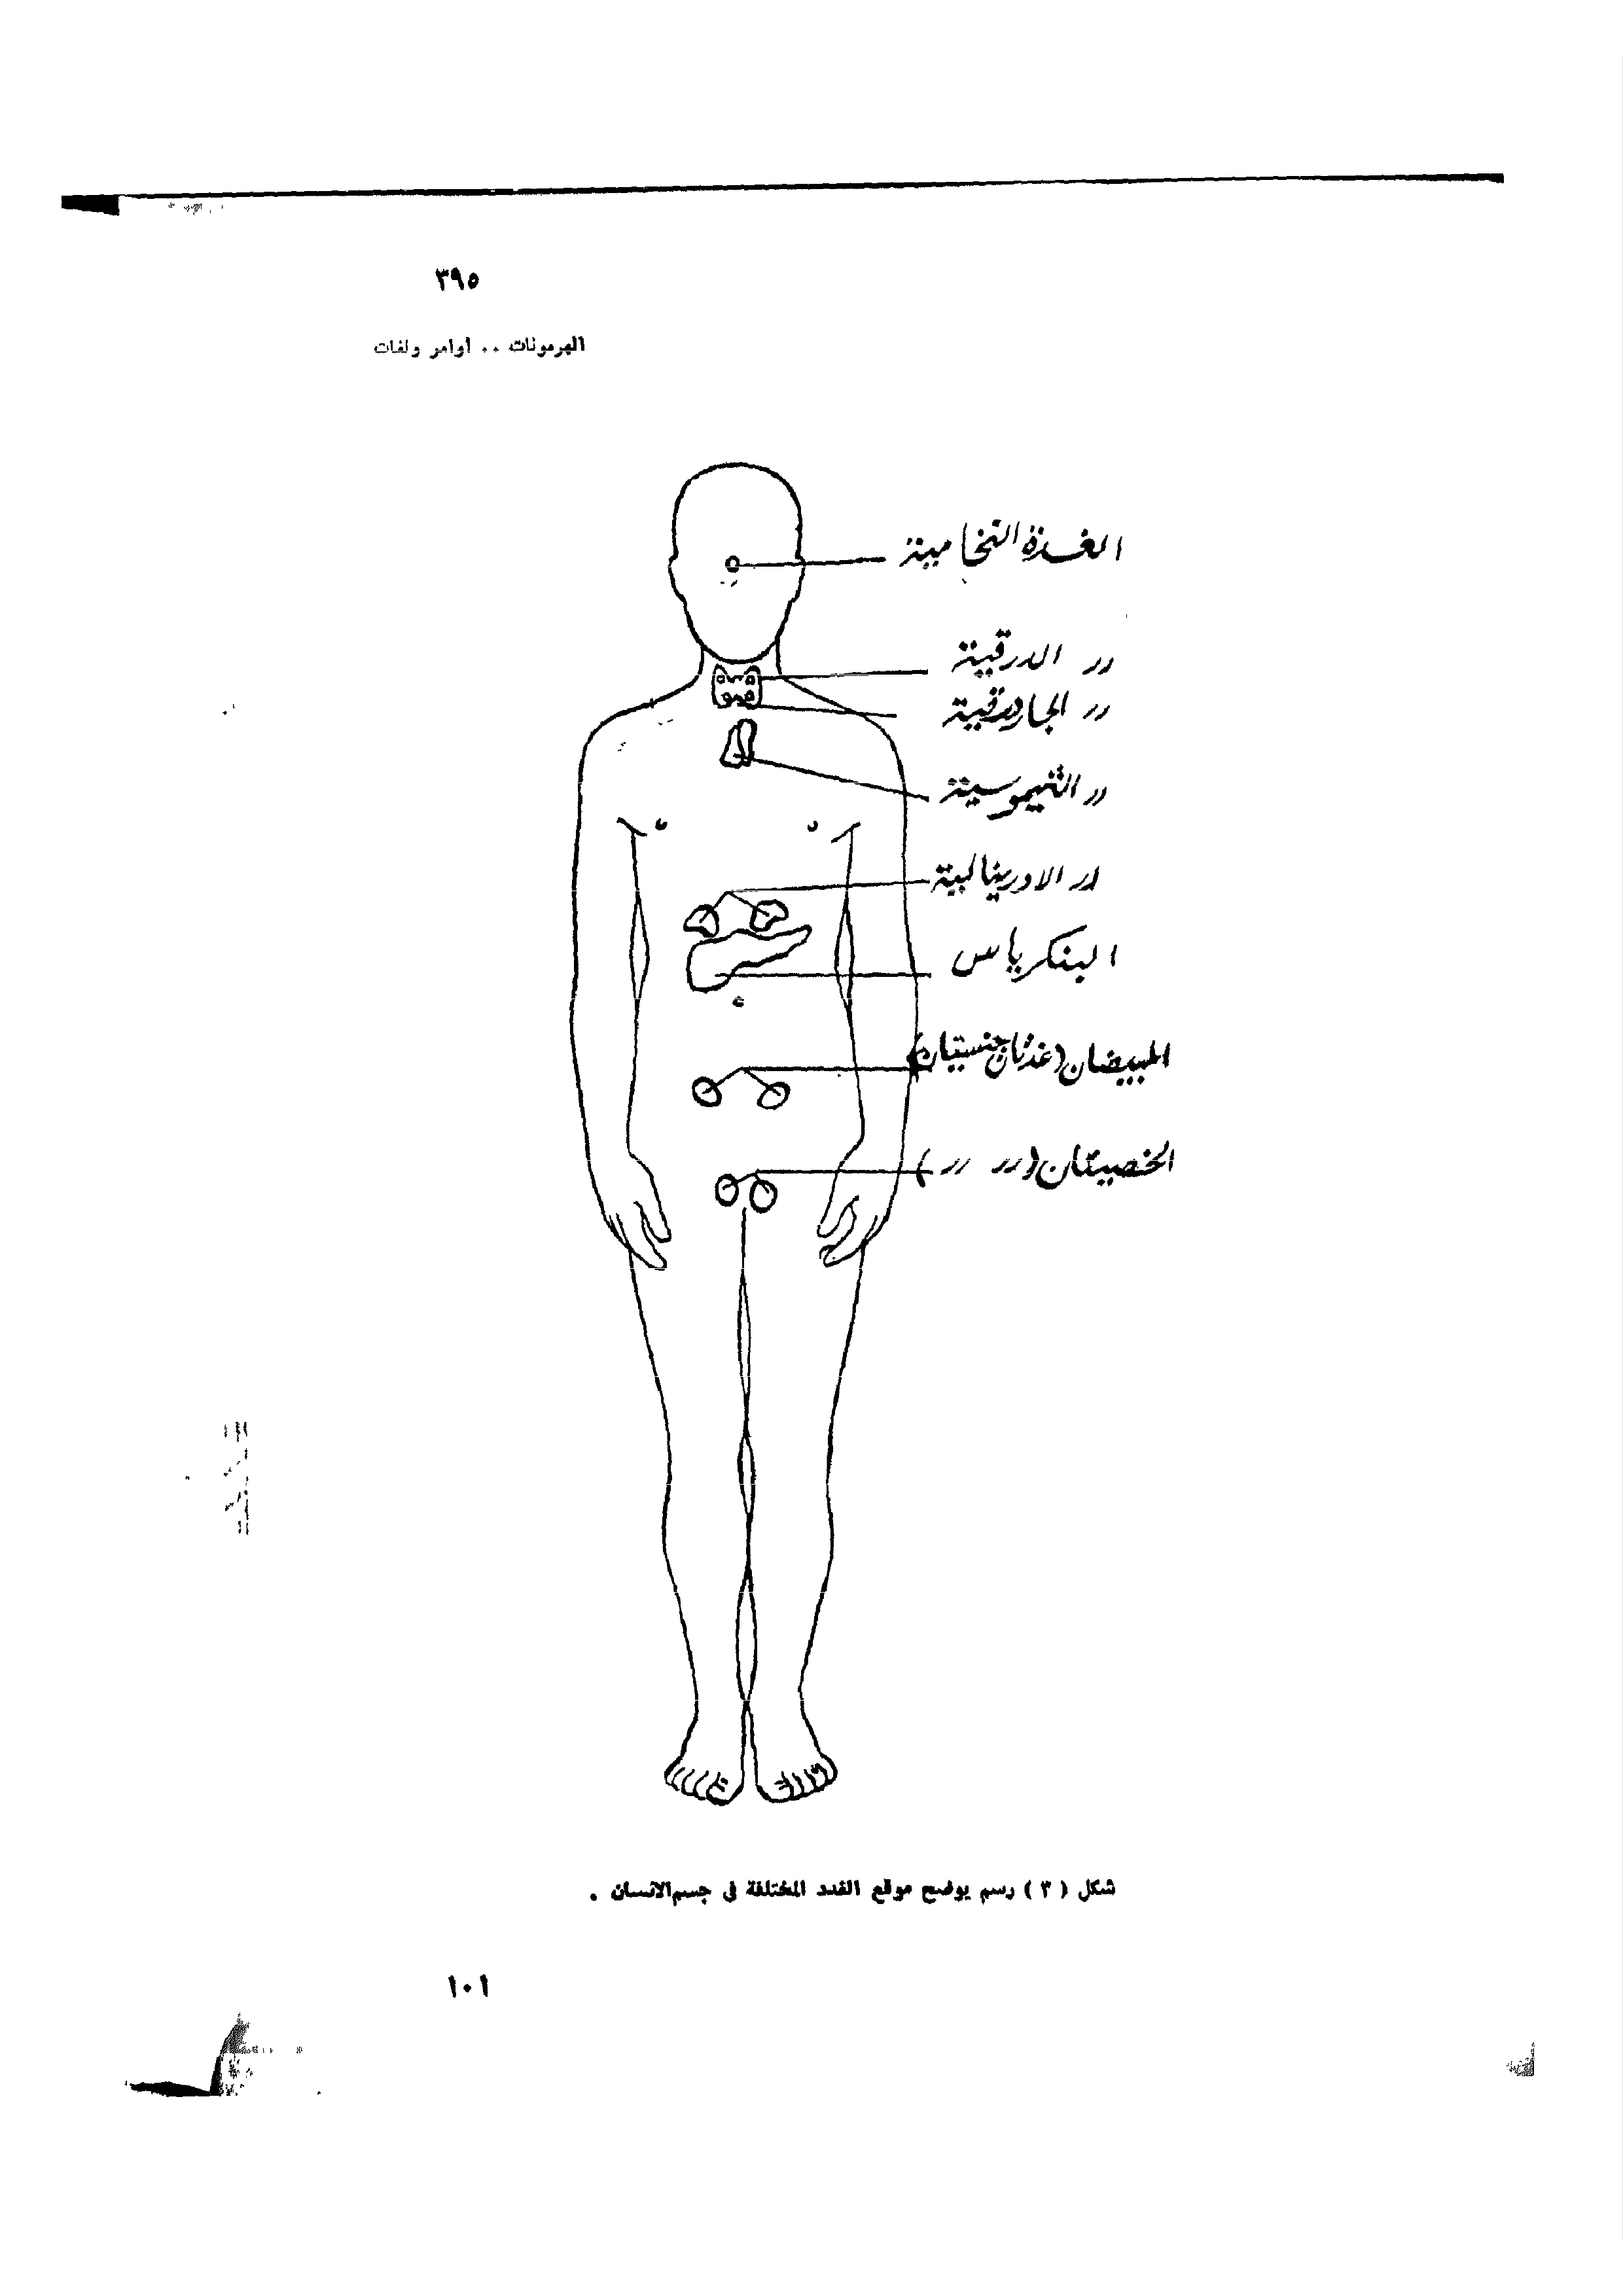 ٣٩٥
الهرمونات .. أوامر ولغات
الغدة النخامية
〃 الدرقية
〃 الجاردرقية
〃 الثيموسية
〃 الادرينالية
البنكرياس
المبيضان (غدتان جنسيتان)
الخصيتان (〃 〃)
شكل ( ٣ ) رسم يوضح موقع الغدد المختلفة في جسم الانسان .
١٠١